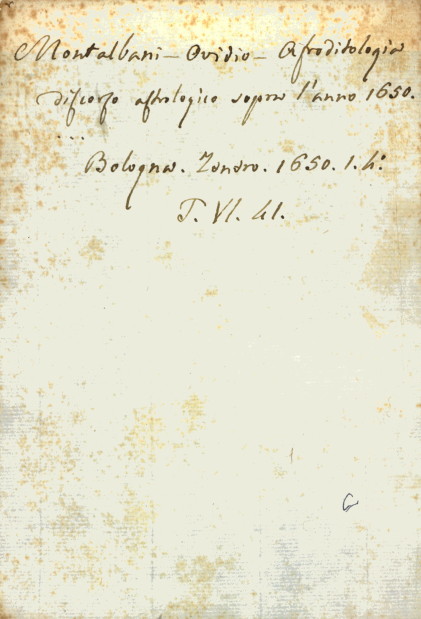 Montalbani – Ovidio – Afroditologia
discorso astrologico sopra l'anno 1650.
...
Bologna. Zenero. 1650. 1. 4:
T. VI. 41.
G